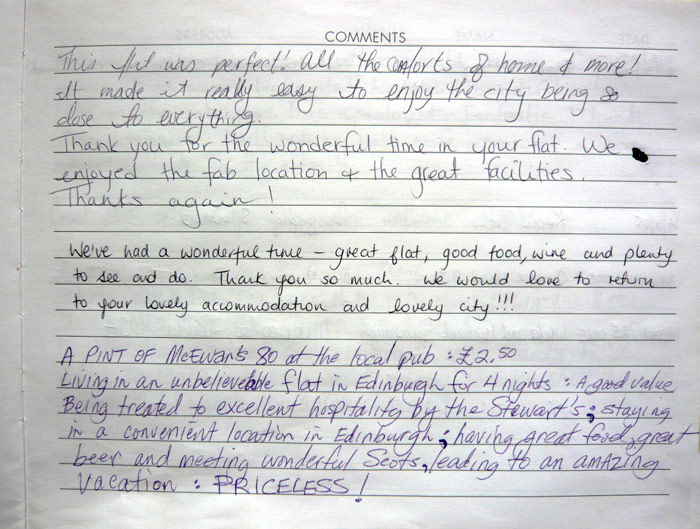 COMMENTS
This flat was perfect! All the comforts of home & more!
It made it really easy to enjoy the city being so
close to everything.
Thank you for the wonderful time in your flat. We
enjoyed the fab location & the great facilities.
Thanks again!
We've had a wonderful time - great flat, good food, wine and plenty
to see and do. Thank you so much. We would love to return
to your lovely accommodation and lovely city!!!
A PINT OF McEwan's 80 at the local pub : £2.50
Living in an unbelievable flat in Edinburgh for 4 nights : A good value
Being treated to excellent hospitality by the Stewart's; staying
in a convenient location in Edinburgh; having great food, great
beer and meeting wonderful Scots, leading to an amazing
vacation : PRICELESS!